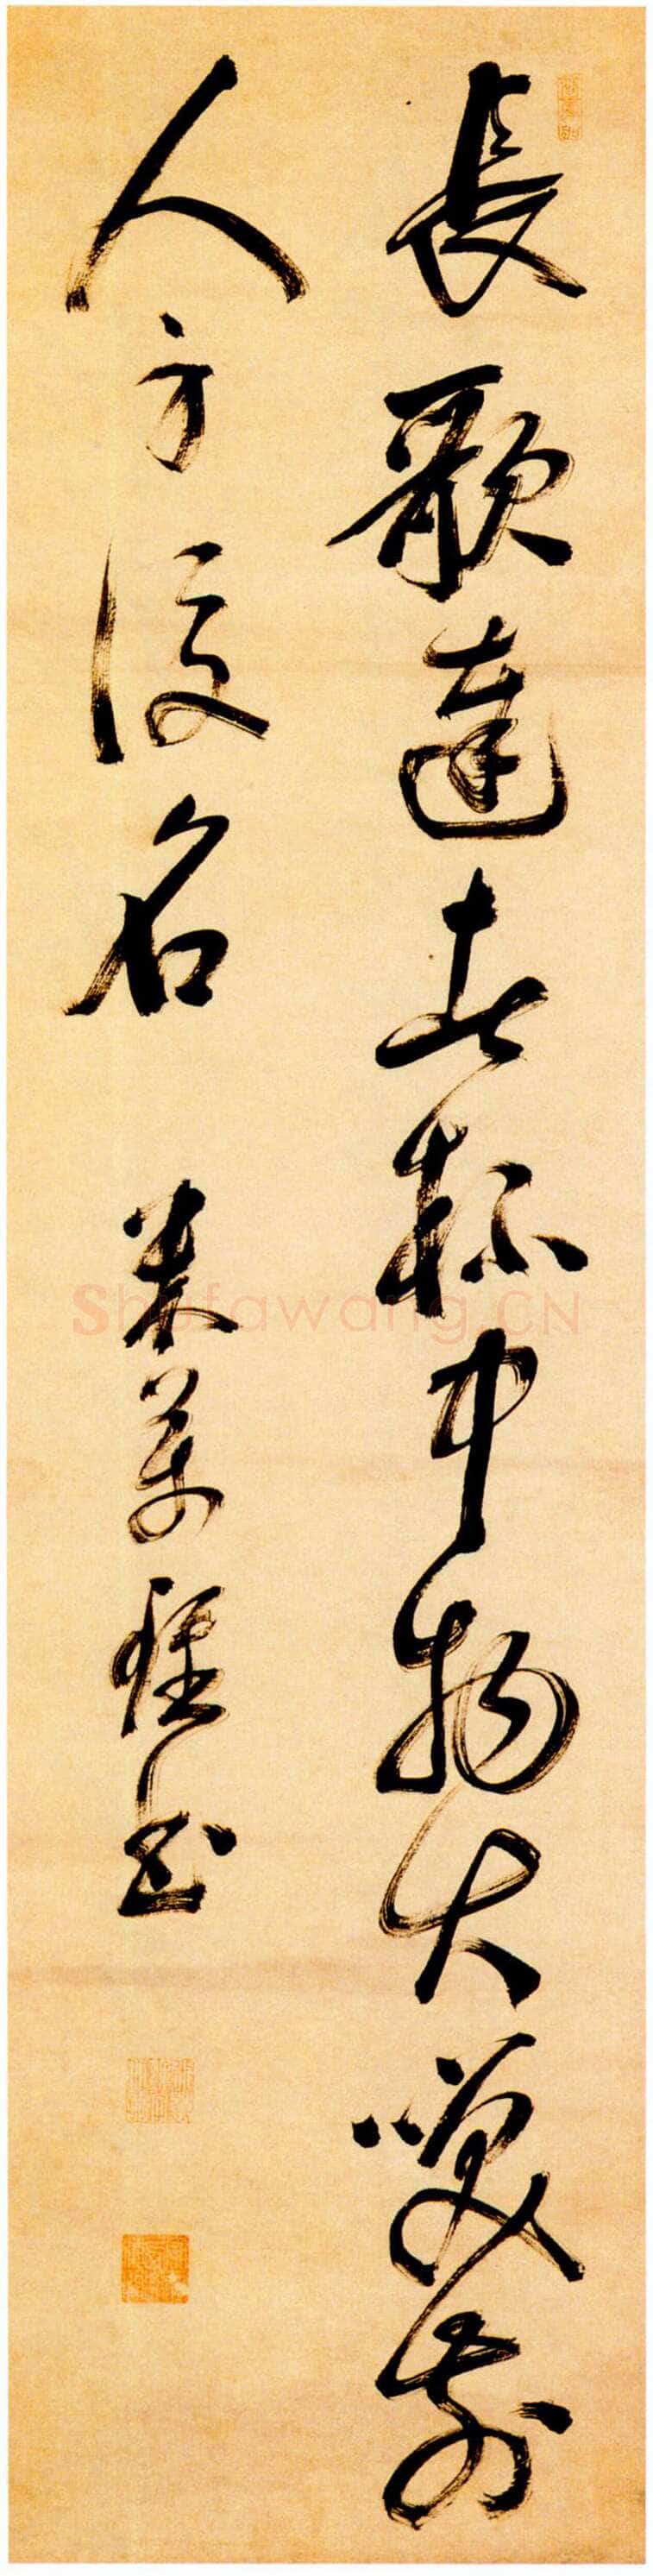 長歌達者杯中物大笑前
人身後名 米萬鍾書
Shufawang.CN